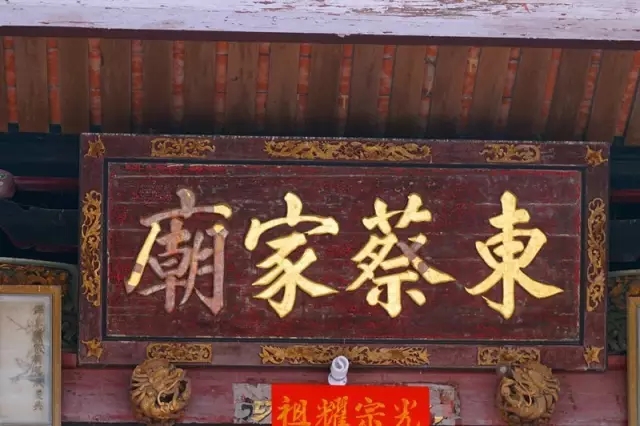 東蔡家廟
光宗耀祖